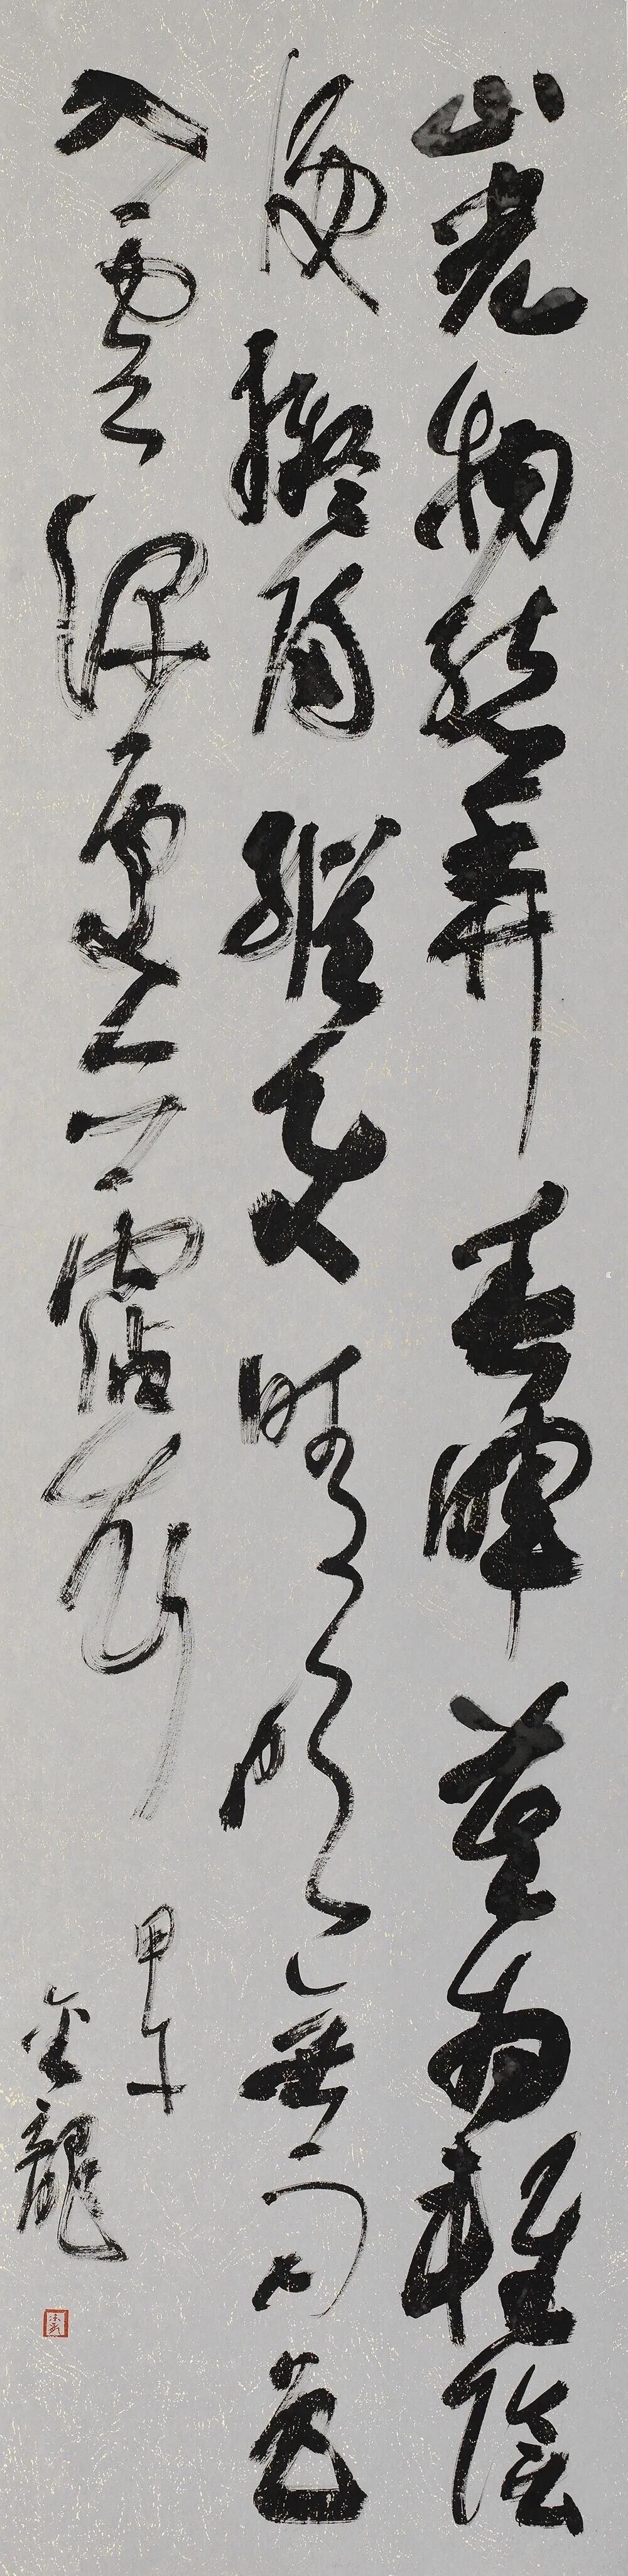 山光物態弄春暉莫為輕陰
便擬歸縱使晴明無雨色
入雲深處亦霑衣
甲午
金龍